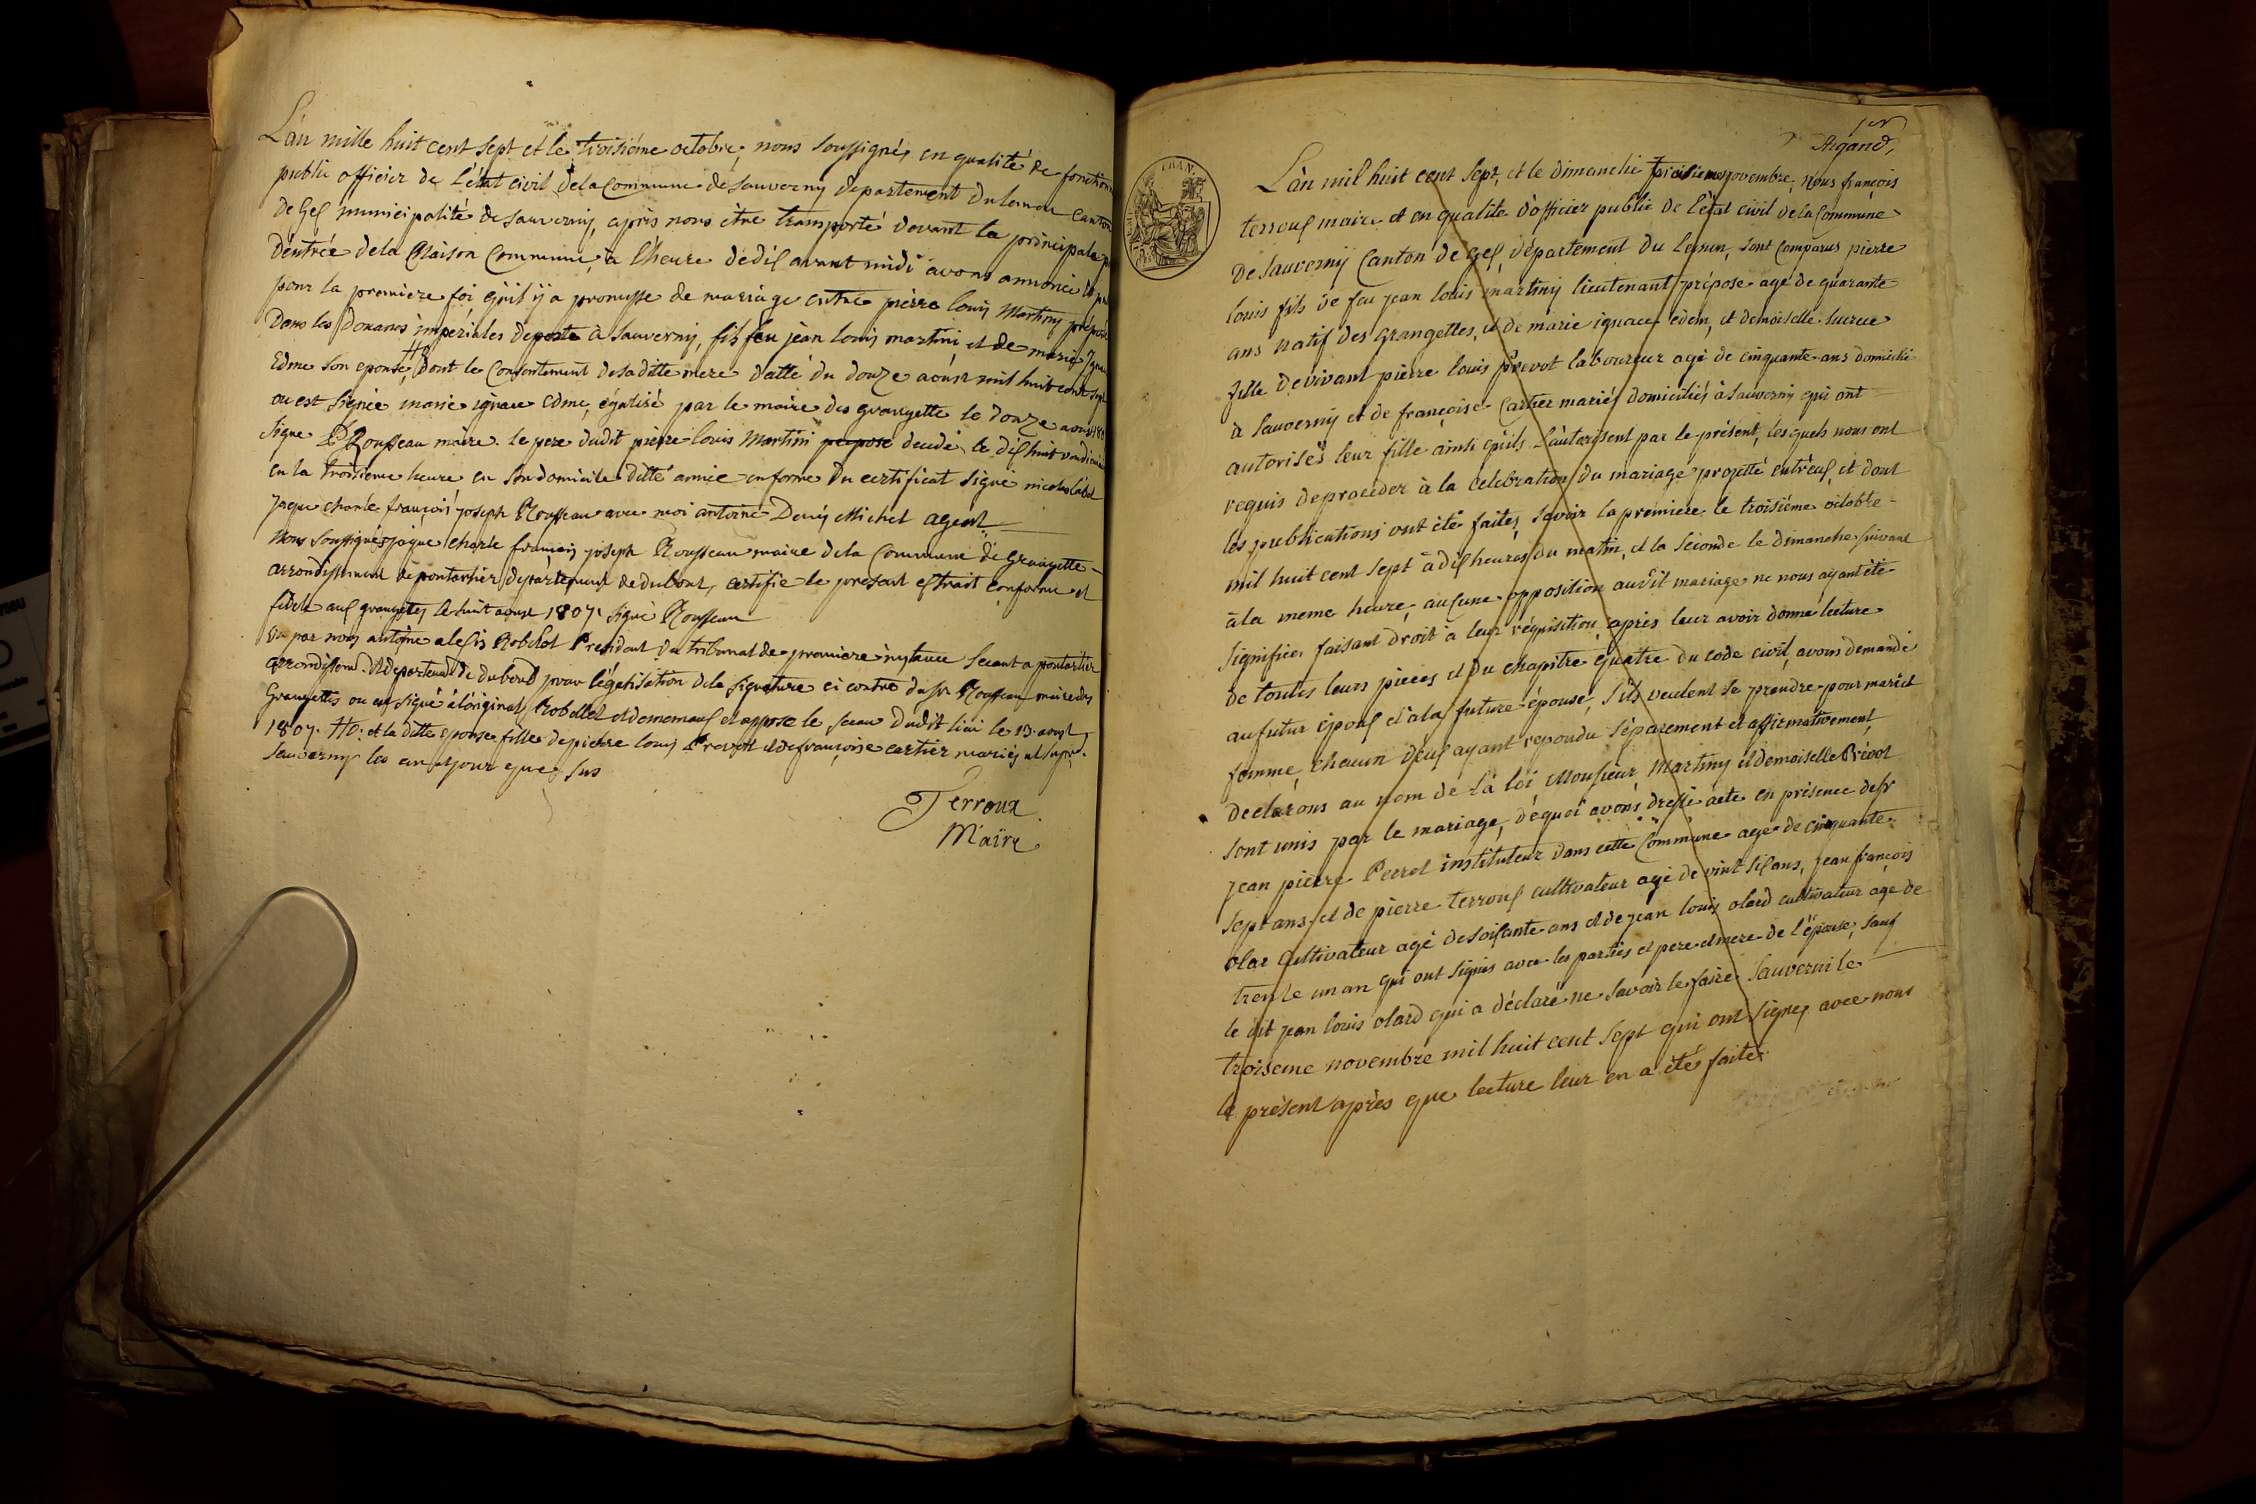 L'an mille huit cent sept et le troisiéme octobre, nous soussignés en qualité de fonction
public officier de l'état civil de la Commune de Sauverny departement du leman canton
de Gex municipalité de Sauverny, après nous être transporté devant la principale
d'entrée de la Maison Commune, à l'heure de dix avant midi avons annoncé
pour la premiere foi qu'il ÿ a promesse de mariage entre pierre louis Martiny préposé
dans les douanes impériales de poste à Sauverny, fils feu jean louis martini et de marie Ignace
Edme son epouse, dont le consentement de sa ditte mere datté du douze aoust mil huit cent sept
ou est signée marie ignace Edme, égalisé par le maire des grangette le douze aoust
signe Rousseau maire. le pere dudit pierre louis Martini prepose decedé le dix huit
en la troisieme heure en son domicile ditte année conforme du certificat signé nicolas
Jaque charle françois joseph Rousseau avec moi antoine Denis Michel agent
Nous soussignés jaque charle françois joseph Rousseau maire de la Commune de Grangette
arrondissement de pontarlier departement de dubout, certifie le present extrait conforme et
fidele aux grangettes le huit aoust 1807. signé Rousseau
Vu par nous antoine alexis Robelot President du tribunal de premiere instance Seant a pontarlier
arrondissem. et departement de dubout pour légalisation de la signature ci contre du sr Rousseau maire des
Grangettes ou est signé à l'original Robellot et apposé le sceau dudit lieu le 13 aoust
1807. et la ditte epouse fille de pierre louis Prevost et de françoise cartier mariés
Sauverny les an et jour que sus
Terroux
Maïre
Argand,
L'an mil huit cent sept, et le dimanche troisieme novembre, nous françois
terroux maire et en qualité d'officier public de l'état civil de la Commune
de Sauverny Canton de Gex, département du Leman, sont comparus pierre
louis fils de feu jean louis martiny lieutenant préposé agé de quarante
ans natif des Grangettes, et de marie ignace edem, et demoiselle lucrece
fille de vivant pierre louis Prevot laboureur agé de cinquante ans domicilié
à Sauverny et de françoise Cartier mariés domiciliés à Sauverny qui ont
autorisés leur fille ainsi qu'ils l'autorisent par le présent, les quels nous ont
requis de procéder à la celebration du mariage projetté entr'eux, et dont
les publications ont été faites, savoir la premiere le troisiéme octobre
mil huit cent sept à dix heures du matin, et la seconde le dimanche suivant
à la meme heure, aucune opposition audit mariage ne nous ayant été
signifiée, faisant droit à leur réquisition, après leur avoir donné lecture
de toutes leurs pieces et du chapitre quatre du code civil, avons demandé
au futur époux et à la future épouse, s'ils veulent se prendre pour mari et
femme, chacun d'eux ayant répondu séparement et affirmativement,
declarons au nom de la loi, Monsieur Martiny et demoiselle Prévot
sont unis par le mariage, de quoi avons dressé acte en présence de sr
jean pierre Perret instituteur dans cette Commune agé de cinquante
sept ans, et de pierre terroux cultivateur agé de vint six ans, jean françois
olar cultivateur agé de soixante ans et de jean louis olard cultivateur âgé de
trente un an qui ont signés avec les parties et pere et mere de l'épouse, sauf
le dit jean louis olard qui a déclaré ne savoir le faire. Sauverni le
troiseme novembre mil huit cent sept qui ont signés avec nous
le présent après que lecture leur en a été faite.